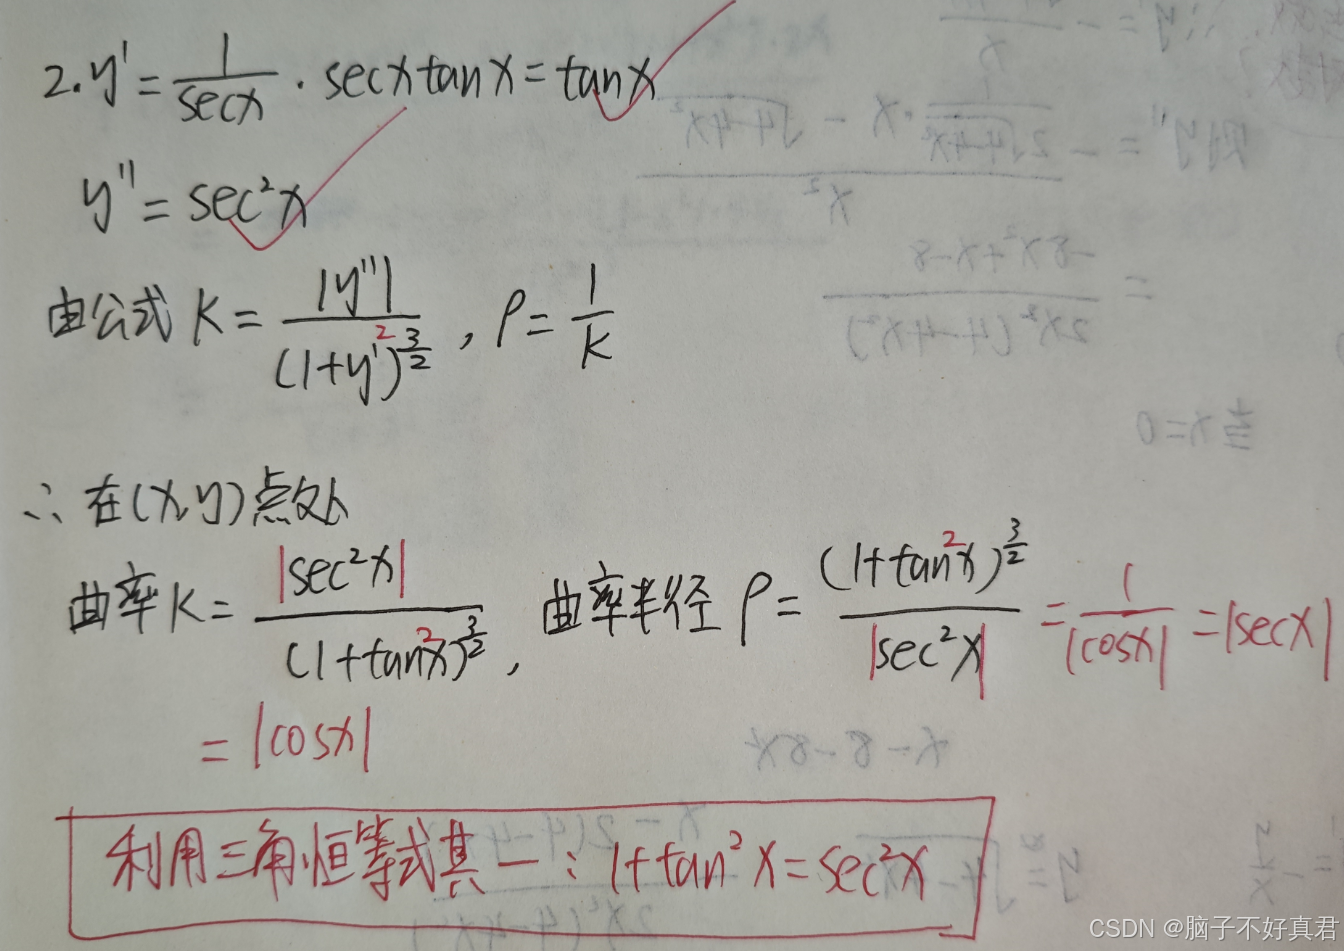 2. y' = 1/secx · secxtanx = tanx
y'' = sec²x
由公式 K = |y''|/(1+y'²)^(3/2) , ρ = 1/K
∴ 在(x,y)点处
曲率K = |sec²x|/(1+tan²x)^(3/2) , 曲率半径 ρ = (1+tan²x)^(3/2)/|sec²x| = 1/|cosx| = |secx|
= |cosx|
利用三角恒等式其一：1+tan²x=sec²x
CSDN @脑子不好真君